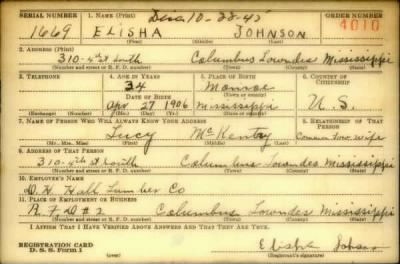 SERIAL NUMBER 1. NAME (Print) Dec. 10-22-45 ORDER NUMBER
1669 ELISHA JOHNSON 4010
(First) (Middle) (Last)
2. ADDRESS (Print)
310-4th St South Columbus Lowndes Mississippi
(Number and street or R. F. D. number) (Town) (County) (State)
3. TELEPHONE 4. AGE IN YEARS 5. PLACE OF BIRTH 6. COUNTRY OF CITIZENSHIP
34 Monroe
DATE OF BIRTH (Town or county)
Apr 27 1906 Mississippi U. S.
(Exchange) (Number) (Mo.) (Day) (Yr.) (State or country)
7. NAME OF PERSON WHO WILL ALWAYS KNOW YOUR ADDRESS 8. RELATIONSHIP OF THAT PERSON
Lucy McKentry Common Law Wife
(Mr., Mrs., Miss) (First) (Middle) (Last)
9. ADDRESS OF THAT PERSON
310-4th St South Columbus Lowndes Mississippi
(Number and street or R. F. D. number) (Town) (County) (State)
10. EMPLOYER'S NAME
D. H. Hall Lumber Co
11. PLACE OF EMPLOYMENT OR BUSINESS
R. F. D # 2 Columbus Lowndes Mississippi
(Number and street or R. F. D. number) (Town) (County) (State)
I AFFIRM THAT I HAVE VERIFIED ABOVE ANSWERS AND THAT THEY ARE TRUE.
REGISTRATION CARD Elisha Johnson
D. S. S. Form 1 (Registrant's signature)